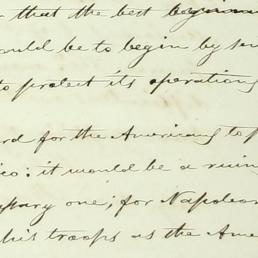 that the best
ould be to begin by
to protect its operations
rd for the Americans to
ico: it would be a ruin
one; for Napoleon
his troops as the Ame